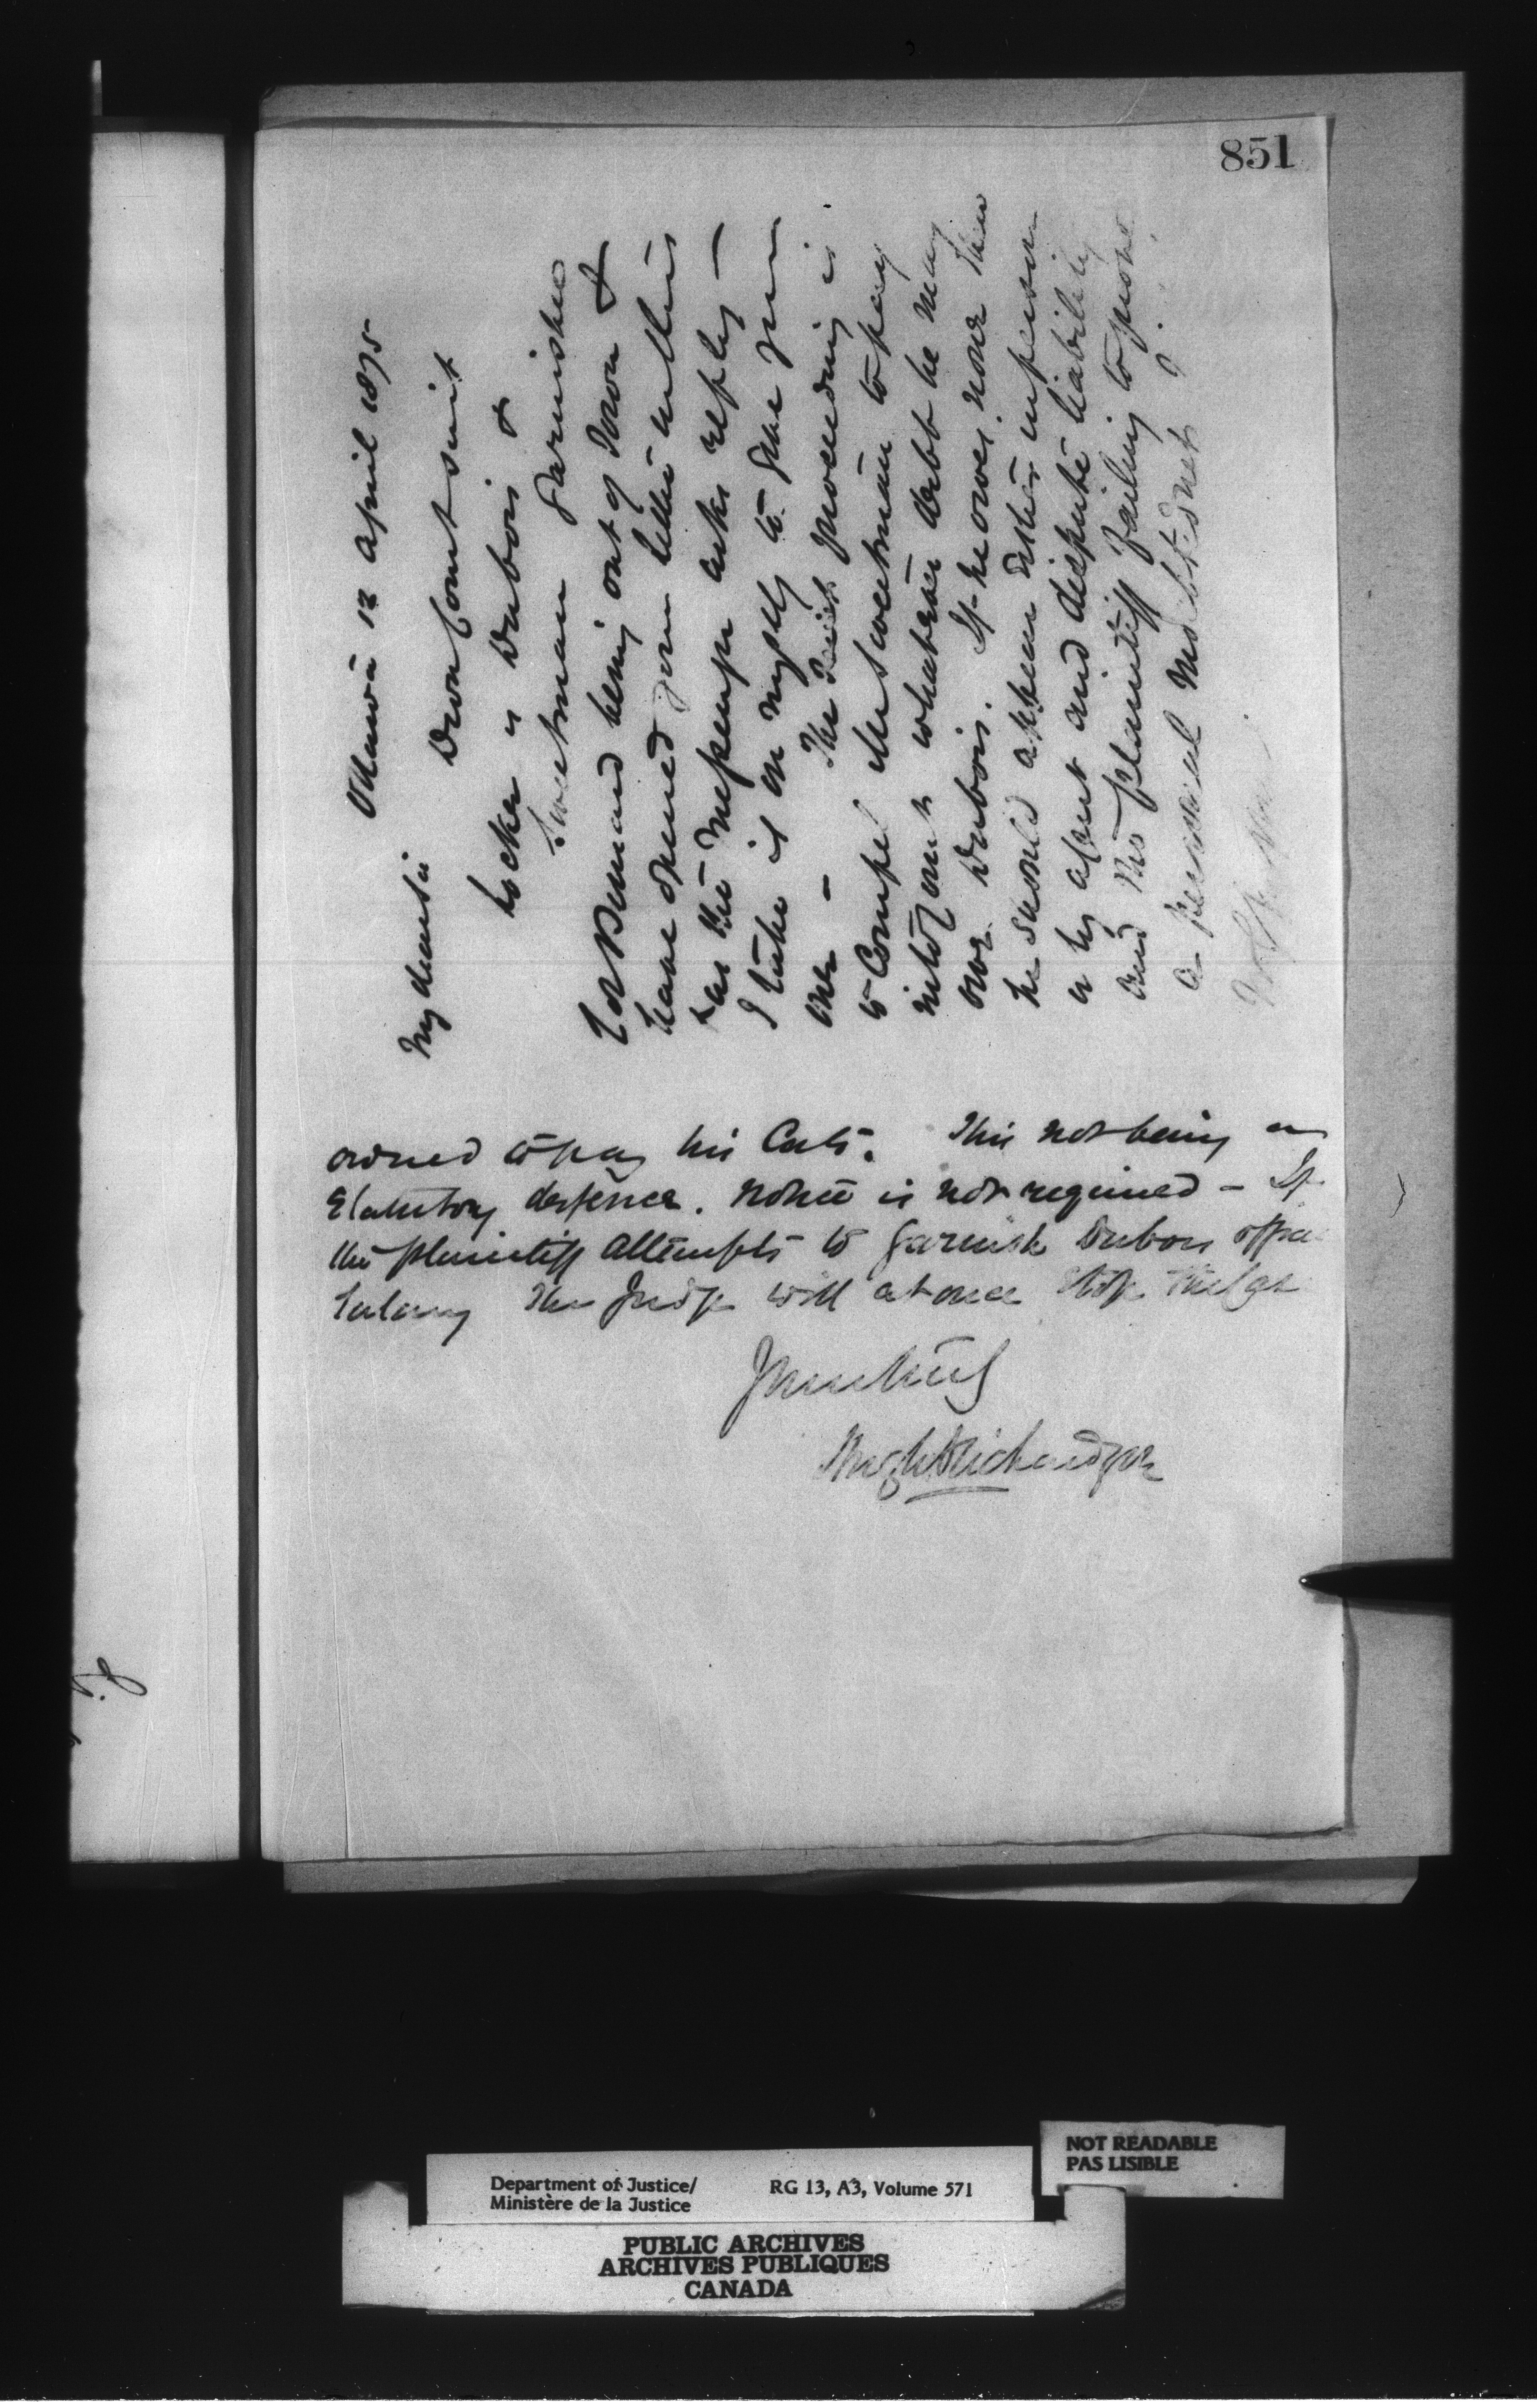 851
Ottawa 12 April 1875
My dear Sir
Dvon Court suit
Locker v Dubois &
Sweetman Garnishee
Col Bernard being out of Town &
have opened your letter in this
& as the messenger asks reply —
I take it on myself to give you
one — The suit proceeding is
to compel Mr Sweetman to pay
into Court whatever debt he may
owe Dubois. If he owes none then
he should appear either in person
or by agent and dispute liability
and the plaintiff failing to prove
a personal indebtedness
ordered to pay his Costs. This not being a
Statutory defence. Notice is not required — If
the plaintiff attempts to garnish Dubois office
Salary the Judge will at once stop the
Yours truly
Hugh Richardson
Department of Justice/
Ministère de la Justice
RG 13, A3, Volume 571
NOT READABLE
PAS LISIBLE
PUBLIC ARCHIVES
ARCHIVES PUBLIQUES
CANADA